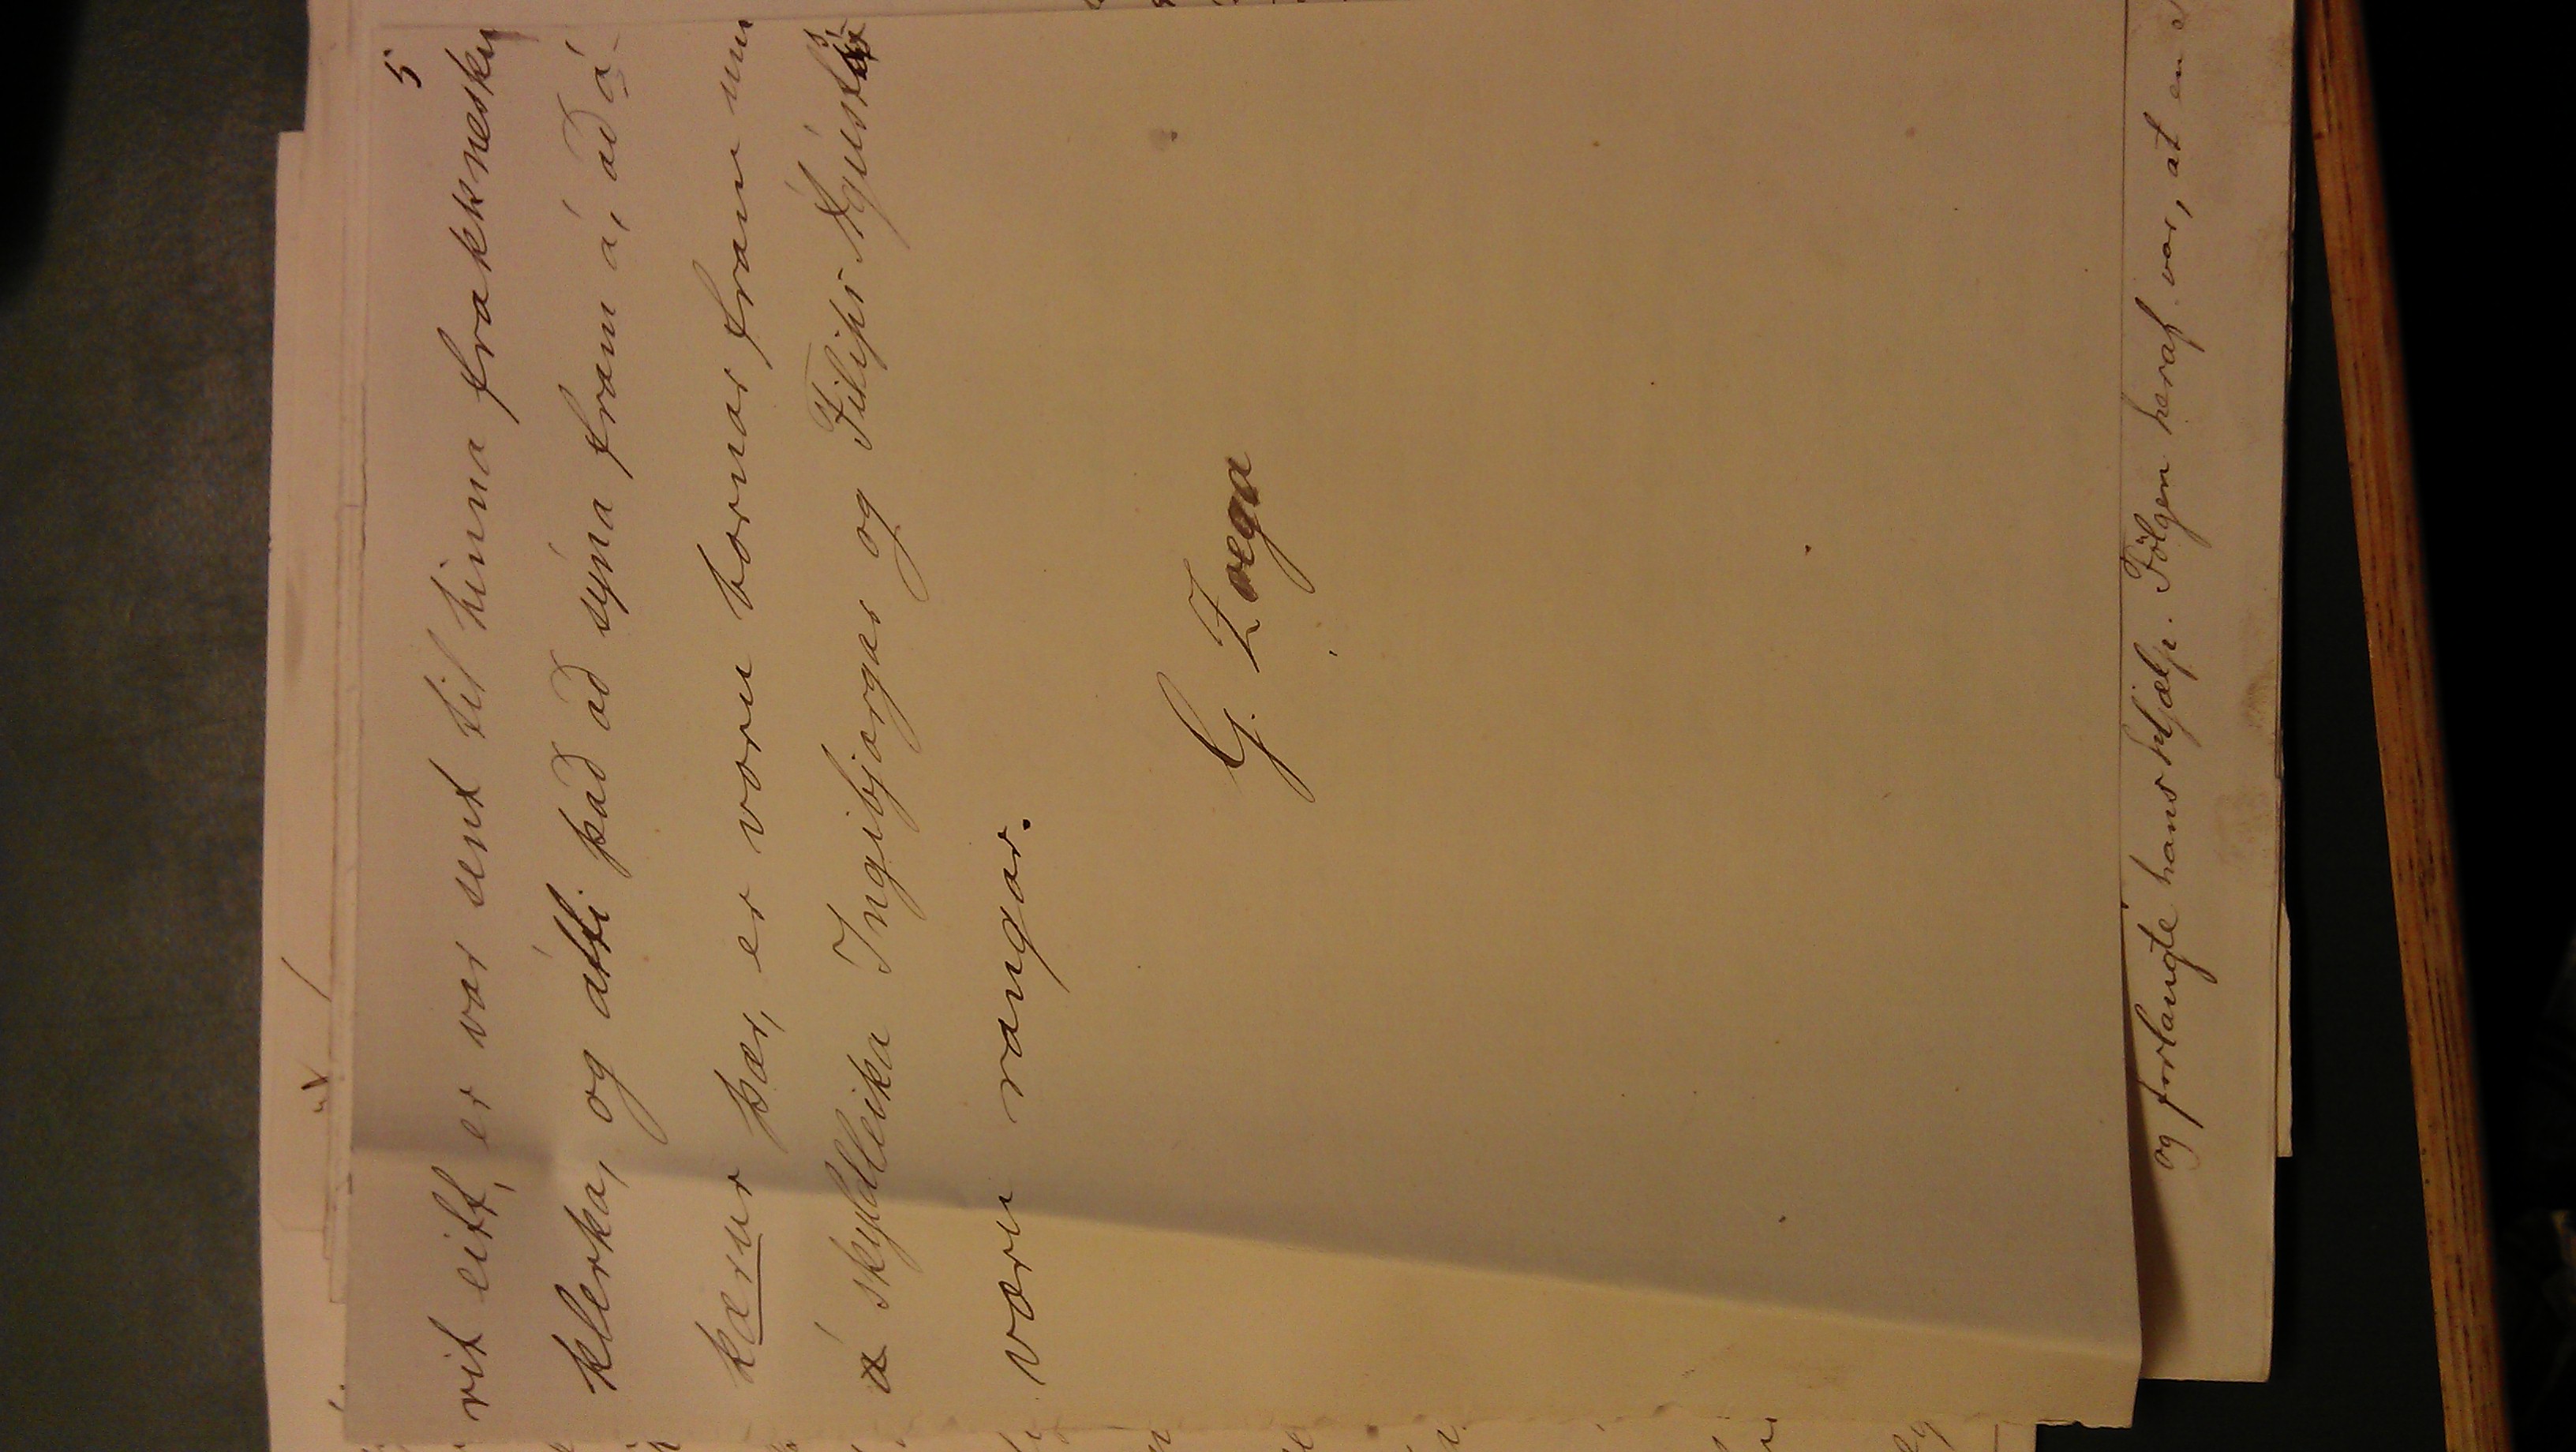 5
rit eitt, er var sent til hinna frakknesku
klerka, og átti það að sýna fram á, að á-
kærur þær, er voru bornar fram um
á skyldleika Ingibjargar og Filips Ágústs
væru rangar.
G. Zoega
og forlangte hans Hjælp. Fölgen heraf var, at en